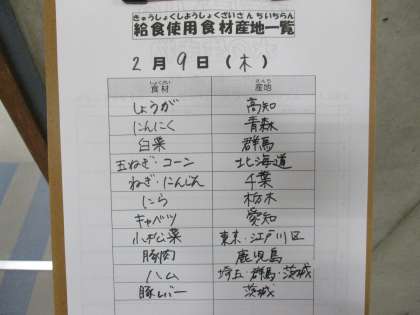 きゅうしょくしようしょくざいさんちいちらん
給食使用食材産地一覧
2月9日(木)
しょくざい さんち
食材 産地
しょうが 高知
にんにく 青森
白菜 群馬
玉ねぎ・コーン 北海道
ねぎ・にんじん 千葉
にら 栃木
キャベツ 愛知
小松菜 東京・江戸川区
豚肉 鹿児島
ハム 埼玉・群馬・茨城
豚レバー 茨城